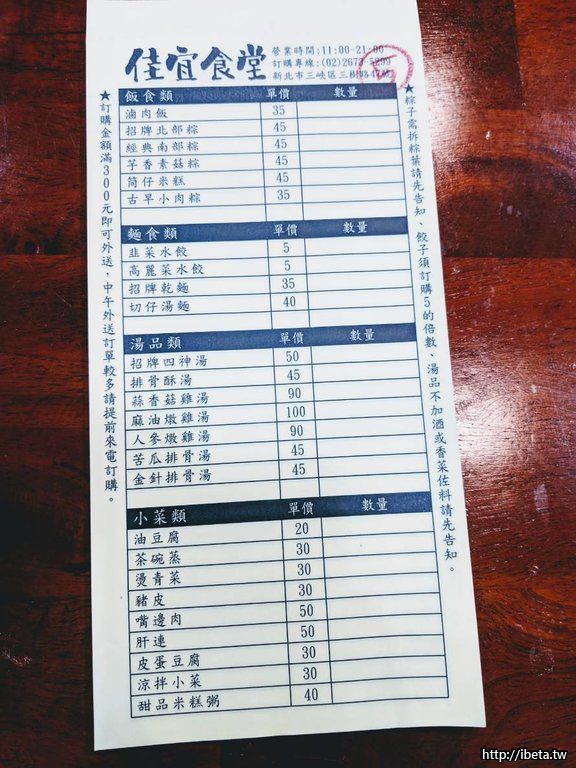 佳宜食堂
營業時間:11:00-21:00
訂購專線:(02)2673-5299
新北市三峽區三樹路
飯食類 單價 數量
滷肉飯 35
招牌北部粽 45
經典南部粽 45
芋香素菇粽 45
筒仔米糕 45
古早小肉粽 35
麵食類 單價 數量
韭菜水餃 5
高麗菜水餃 5
招牌乾麵 35
切仔湯麵 40
湯品類 單價 數量
招牌四神湯 50
排骨酥湯 45
蒜香菇雞湯 90
麻油燉雞湯 100
人參燉雞湯 90
苦瓜排骨湯 45
金針排骨湯 45
小菜類 單價 數量
油豆腐 20
茶碗蒸 30
燙青菜 30
豬皮 30
嘴邊肉 50
肝連 50
皮蛋豆腐 30
涼拌小菜 30
甜品米糕粥 40
★訂購金額滿300元即可外送，中午外送訂單較多請提前來電訂購。
★粽子需拆粽葉請先告知、餃子須訂購5的倍數、湯品不加酒或香菜佐料請先告知。
http://ibeta.tw